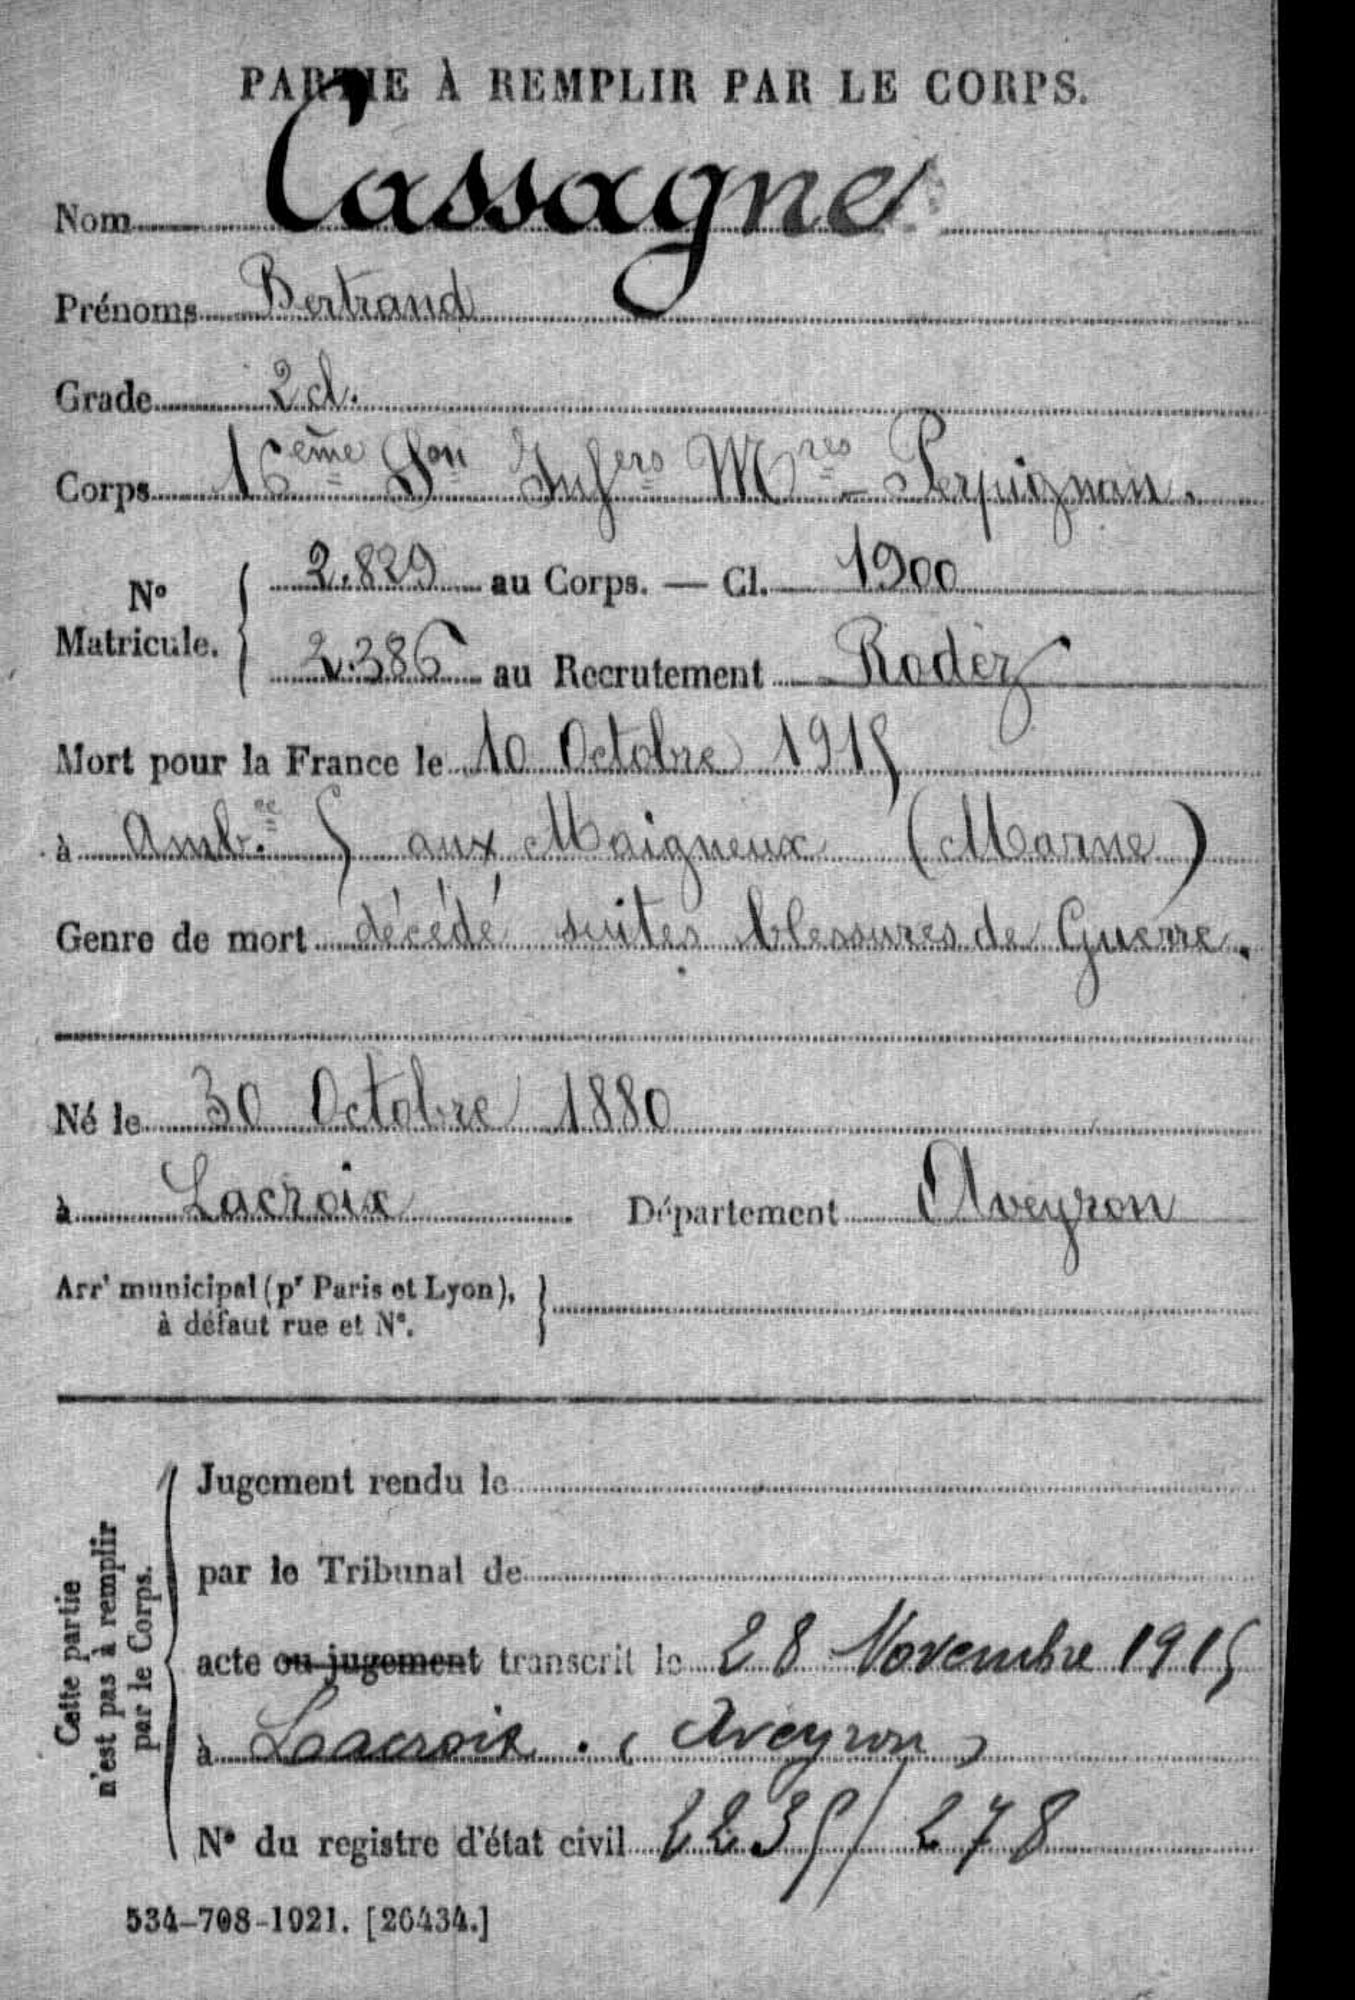 PARTIE À REMPLIR PAR LE CORPS.
Nom Cassagne
Prénoms Bertrand
Grade 2 cl.
Corps 16ème Son Infers Mres - Perpignan.
No Matricule. { 2.829 au Corps. — Cl. 1900
2.386 au Recrutement Rodez
Mort pour la France le 10 Octobre 1915
à Amb.ce 5 aux Maigneux (Marne)
Genre de mort décédé suites blessures de Guerre.
Né le 30 Octobre 1880
à Lacroix Département Aveyron
Arrt municipal (pr Paris et Lyon),
à défaut rue et No. }
Cette partie
n'est pas à remplir
par le Corps.
Jugement rendu le
par le Tribunal de
acte ou jugement transcrit le 28 Novembre 1915
à Lacroix. (Aveyron)
No du registre d'état civil 2235/278
534-708-1921. [26434.]